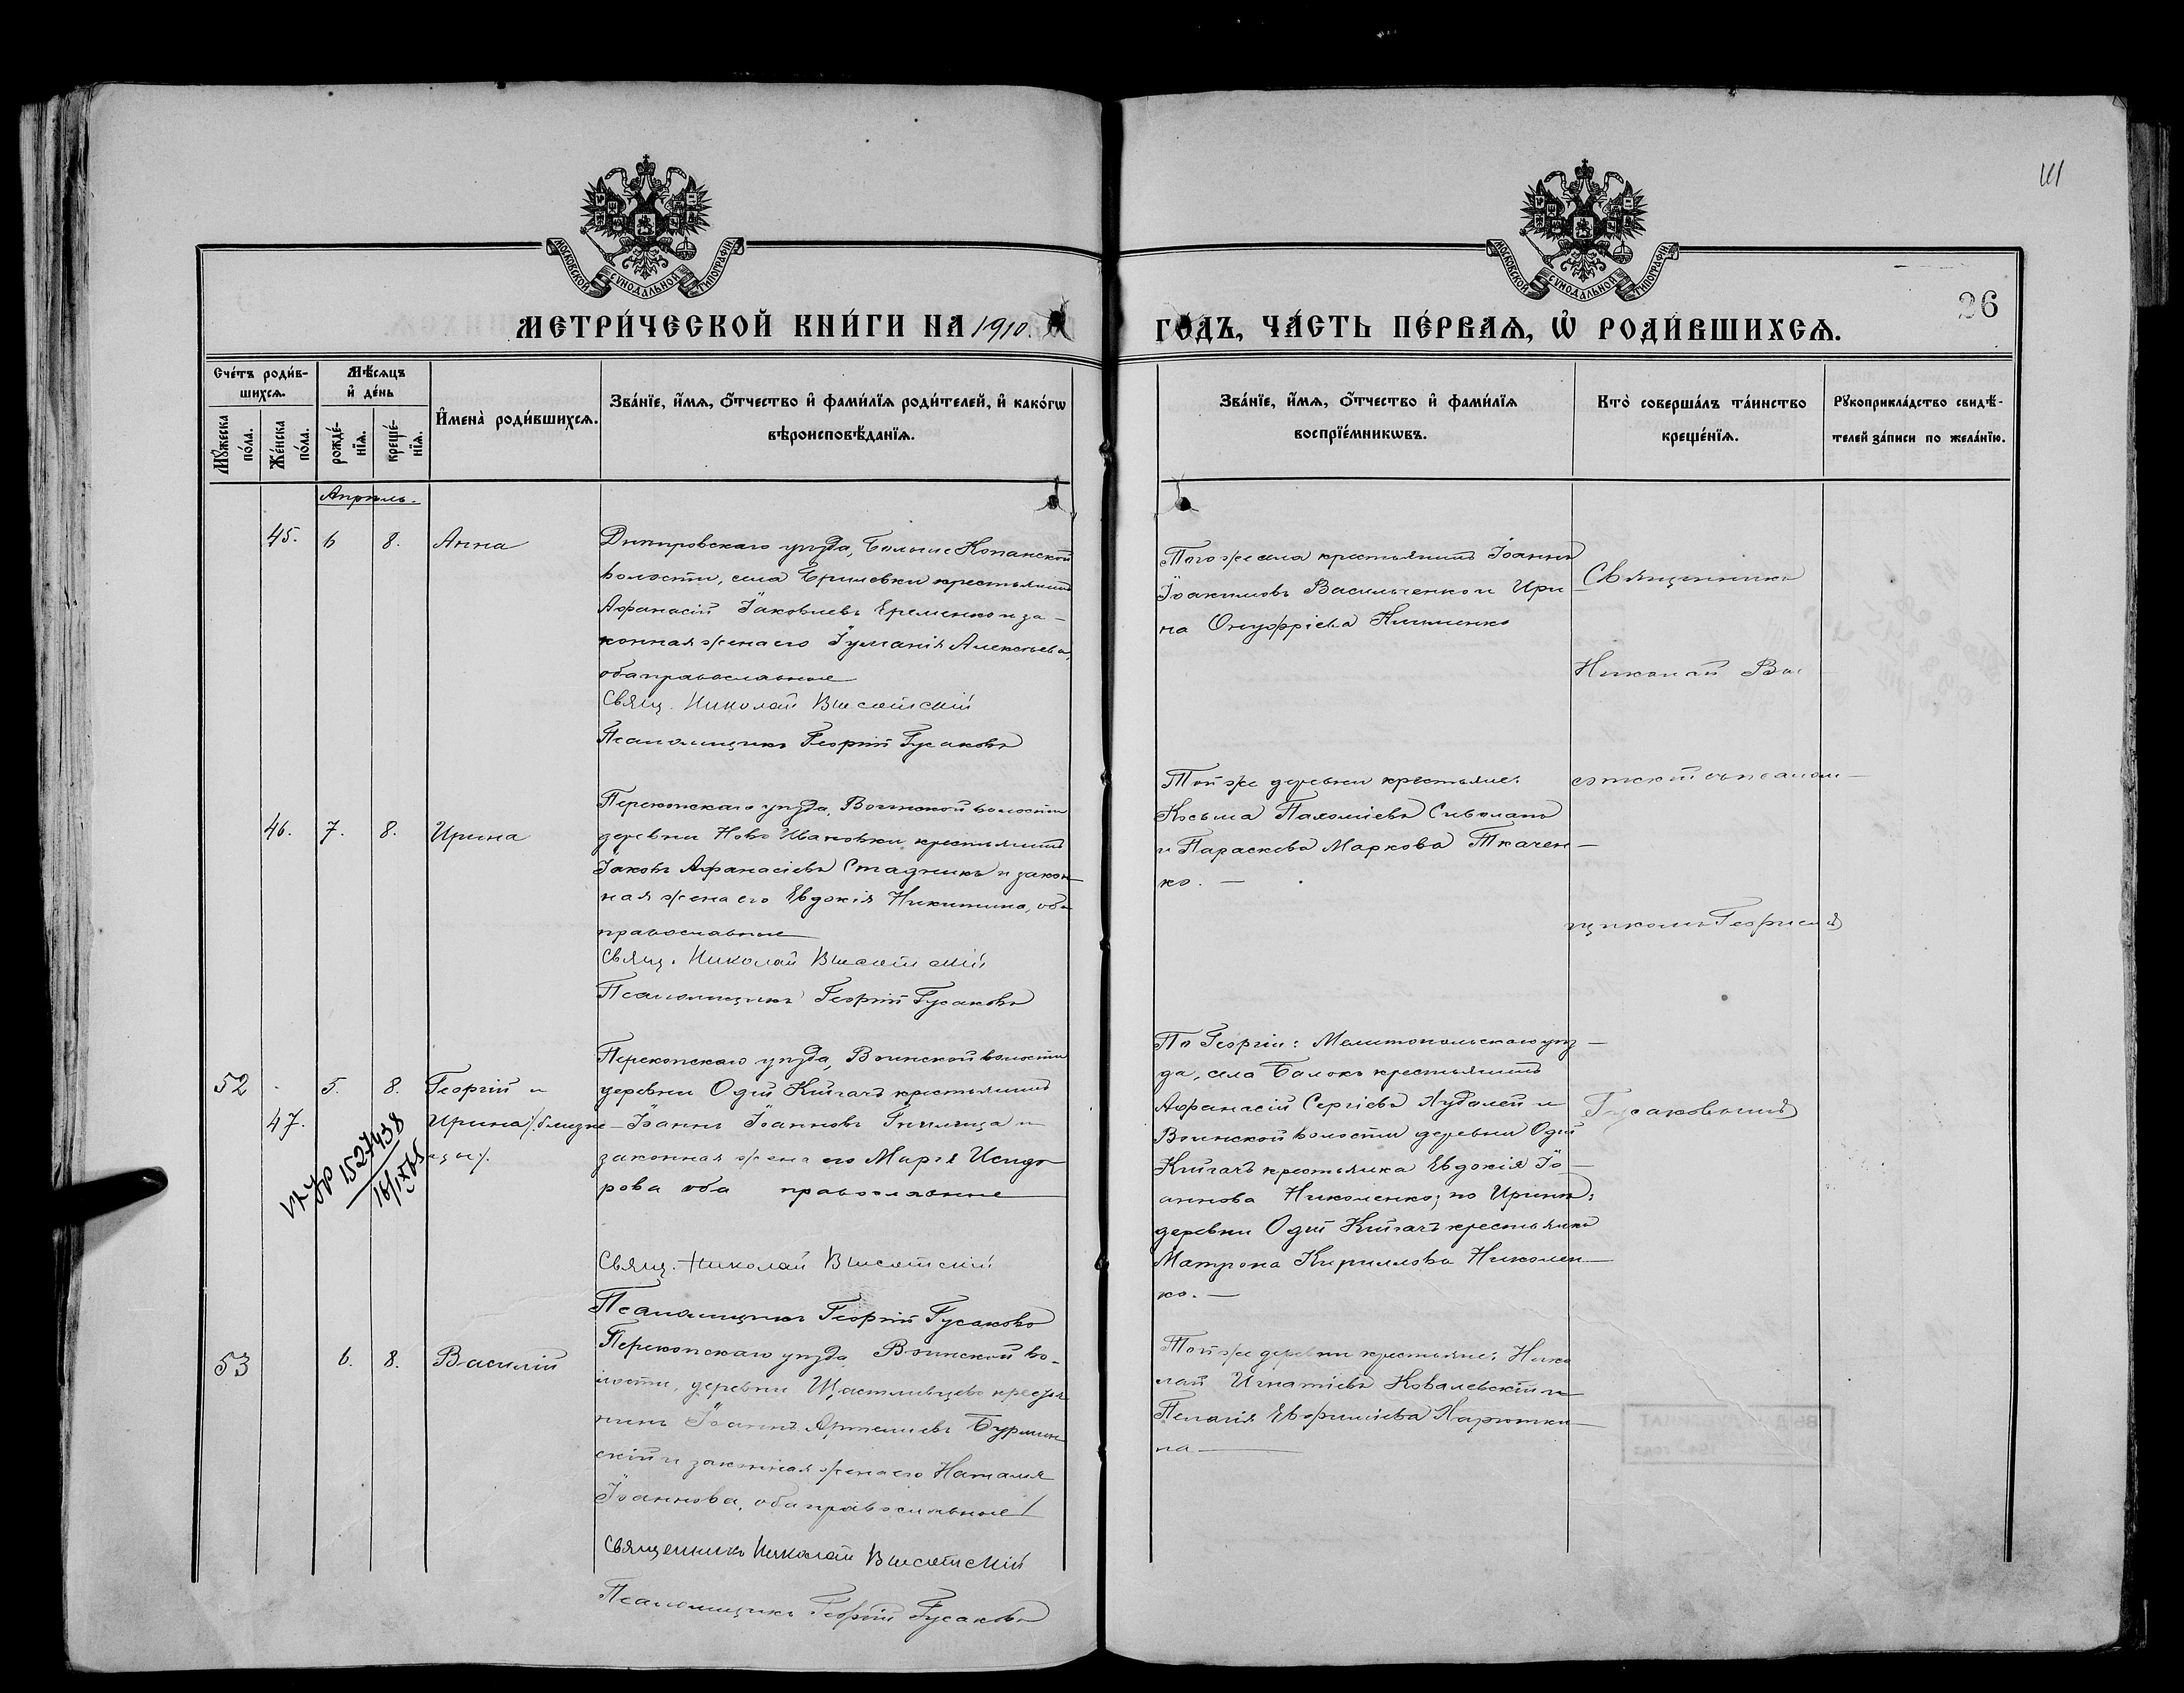 111
26
МОСКОВСКОЙ СѴНОДАЛЬНОЙ ТИПОГРАФІИ
МОСКОВСКОЙ СѴНОДАЛЬНОЙ ТИПОГРАФІИ
МЕТРИ́ЧЕСКОЙ КНИ́ГИ НА 1910.
ГОДЪ, ЧА́СТЬ ПЕ́РВАѦ, Ѽ РОДИ́ВШИХСѦ.
Сче́тъ роди́в-
шихсѧ.
Мꙋ́жеска по́ла.
Же́нска по́ла.
Мѣ́сѧцъ
и҆ де́нь
рожде́-
нїѧ.
креще́-
нїѧ.
И҆мена̀ роди́вшихсѧ.
Зва́нїе, и҆́мѧ, ѻ҆́тчество и҆ фами́лїѧ роди́телей, и҆ како́гѡ
вѣроисповѣ́данїѧ.
Зва́нїе, и҆́мѧ, ѻ҆́тчество и҆ фами́лїѧ
воспрїе́мникѡвъ.
Кто̀ соверша́лъ та́инство
креще́нїѧ.
Рꙋкоприкла́дство свидѣ́-
телей за́писи по жела́нїю.
Апрѣль.
45. 6 8. Анна
Днѣпровскаго уѣзда, Больше Копанской
волости, села Брилевки крестьянинъ
Афанасій Іаковлевъ Еременко и за-
конная жена его Іуліанія Алексѣева,
оба православные
Свящ. Николай Высотскій
Псаломщикъ Георгій Гусаковъ
Того же села крестьянинъ Іоаннъ
Іоакимовъ Васильченко и Ири
на Онуфріева Клименко
Священникъ
Николай Выс
46. 7. 8. Ирина
Перекопскаго уѣзда, Воинской волости
деревни Ново Ивановки крестьянинъ
Іаковъ Афанасіевъ Стадникъ и закон-
ная жена его Евдокія Никитина, оба
православные
Свящ. Николай Высотскій
Псаломщикъ Георгій Гусаковъ
Той же деревни крестьяне:
Косьма Пахоміевъ Сиволапъ
и Параскева Маркова Ткачен-
ко. —
отскій съ псалом-
щикомъ Георгіемъ
52 5. 8. Георгій и
47. Ирина /: близне-
цы :/.
УР 1527438
16/IX75
Перекопскаго уѣзда, Воинской волости
деревни Огуй Кйгачъ крестьянинъ
Іоаннъ Іоанновъ и
законная жена его Марія Исидо
рова оба православные
Свящ. Николай Высотскій
Псаломщикъ Георгій Гусаковъ
По Георгіи: Мелитопольскаго уѣз-
да, села Балокъ крестьянинъ
Афанасій Сергіевъ и
Воинской волости деревни Огуй
Кйгачъ крестьянка Евдокія Іо-
аннова Николенко; по Иринѣ:
деревни Огуй Кйгачъ крестьянка
Матрона Кириллова Николен-
ко. —
Гусаковымъ
53 6. 8. Василій
Перекопскаго уѣзда Воинской во-
лости, деревни Щастливцево крестья
нинъ Іоаннъ Артеміевъ Бурлин
скій и законная жена его Наталія
Іоаннова, оба православные
Священникъ Николай Высотскій
Псаломщикъ Георгій Гусаковъ
Той же деревни крестьяне: Нико
лай Игнатіевъ Ковалевскій и
Пелагія Евфиміева Харюшки-
на —